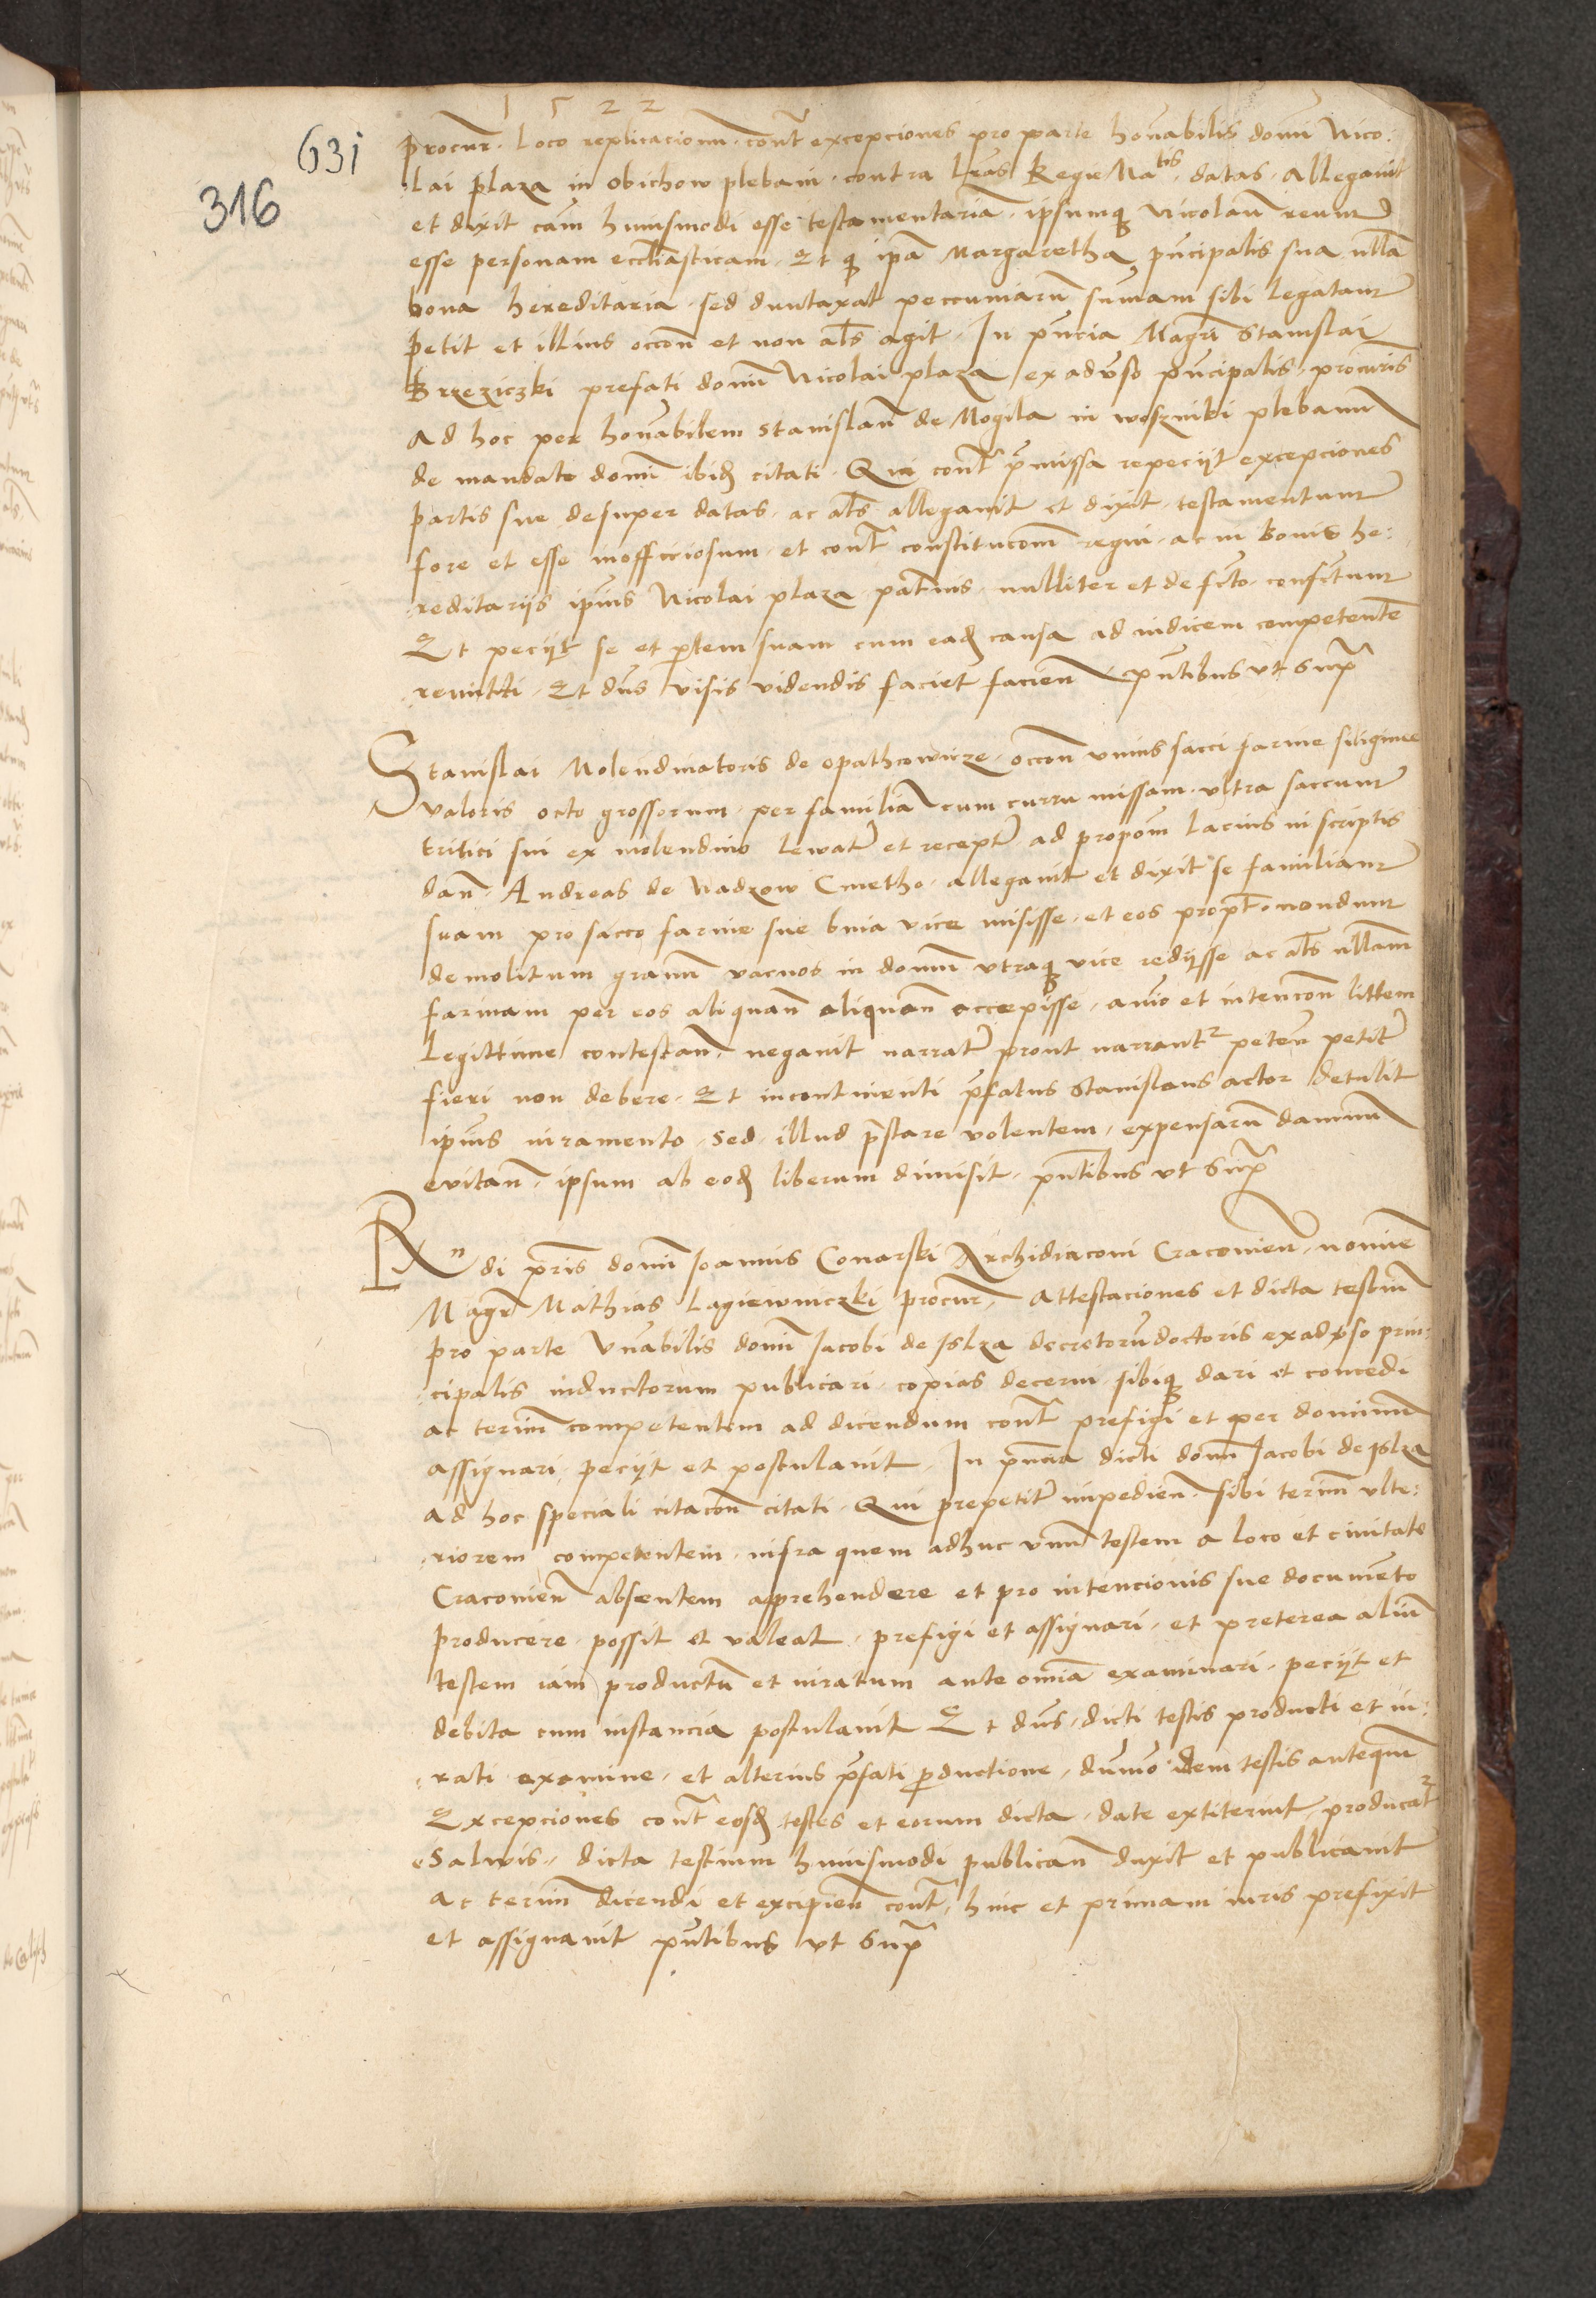 1522
631
316
procur. Loco replicacionu. cont excepciones pro parte honabilis domi Nico:
lai plaza in obichow plebani. contra lras Regie Matis. datas. Allegavit
et dixit cam huiusmodi esse testamentaria. ipsumq Nicolau reum
esse personam eccliasticam. Et q ipa Margaretha pncipalis sua nlla
bona hereditaria. sed duntaxat peccuniaru sumam sibi legatam
petit et illius occon et non als agit. In pncia Magri Stanislai
Brzeziczki prefati domi Nicolai plaza ex aduso pncipalis. procuris
Ad hoc per honabilem Stanislau de Mogila in woszniki plebanu
de mandato domi ibid citati. Qui cont pmissa repeciit excepciones
partis sue desuper datas. ac als allegavit et dixit. testamentum
fore et esse inofficiosum. et cont constitucom regni. ac in bonis he:
reditarijs ipius Nicolai plaza patruis. nulliter et de fcto confcitum
Et peciit se et ptem suam cum ead causa ad iudicem competente
remitti. Et dns visis videndis faciet facien. pntibus vt supra
Stanislai Molendinatoris de opathcowicze. occon vnius sacci farine siliginee
valoris octo grossorum. per familia cum curru missam. vltra saccum
tritici sui ex molendino lewatr et receptr ad propom lacius in scriptis
dan. Andreas de Nadzow Cmetho. allegavit et dixit se familiam
suam pro sacco farine sue bina vice misisse. et eos propt nondum
demolitum granu vacuos in domu vtraq vice redijsse ac als nllam
farinam per eos aliquan aliquan accepisse. anio et intencon littem
legittime contestan. negavit narratr prout narrantr peten petitr
fieri non debere. Et incontinenti pfatus Stanislaus actor detulit
ipius iuramento. sed illud pstare volentem. expensaru damnu
evitan. ipsum ab eod liberum dimisit. pntibus vt supra
Rndi pris domi Joannis Conarski Archidiaconi Cracovien. nomie
Magr Mathias Lagiewniczki procur. Attestaciones et dicta testiu
pro parte Vnabilis domi Jacobi de Jslza decretoru doctoris ex aduso prin:
cipalis inductorum publicari. copias decerni. sibiq dari et concedi
ac terim competentem ad dicendum cont prefigi et per dominu
assignari peciit et postulavit. In pncia dicti domi Jacobi de Jslza
Ad hoc speciali citacon citati. Qui prepetitr impedien. sibi terim vlte:
riorem competentem. infra quem adhuc vnu testem a loco et civitate
Cracovien absentem apprehendere et pro intencionis sue documeto
producere possit et valeat. prefigi et assignari. et preterea aliu
testem iam productu et iuratum ante omia examinari. peciit et
debita cum instancia postulavit Et dns. dicti testis producti et iu:
rati examine. et alterius pfati pductione. dumo idem testis anteqm
Excepciones cont eosd testes et eorum dicta. date extiterint producatr
Salvis. dicta testium huiusmodi publican duxit et publicavit
Ac terim dicendi et excipien cont. hinc et primam iuris prefixit
et assignavit pntibus vt supra